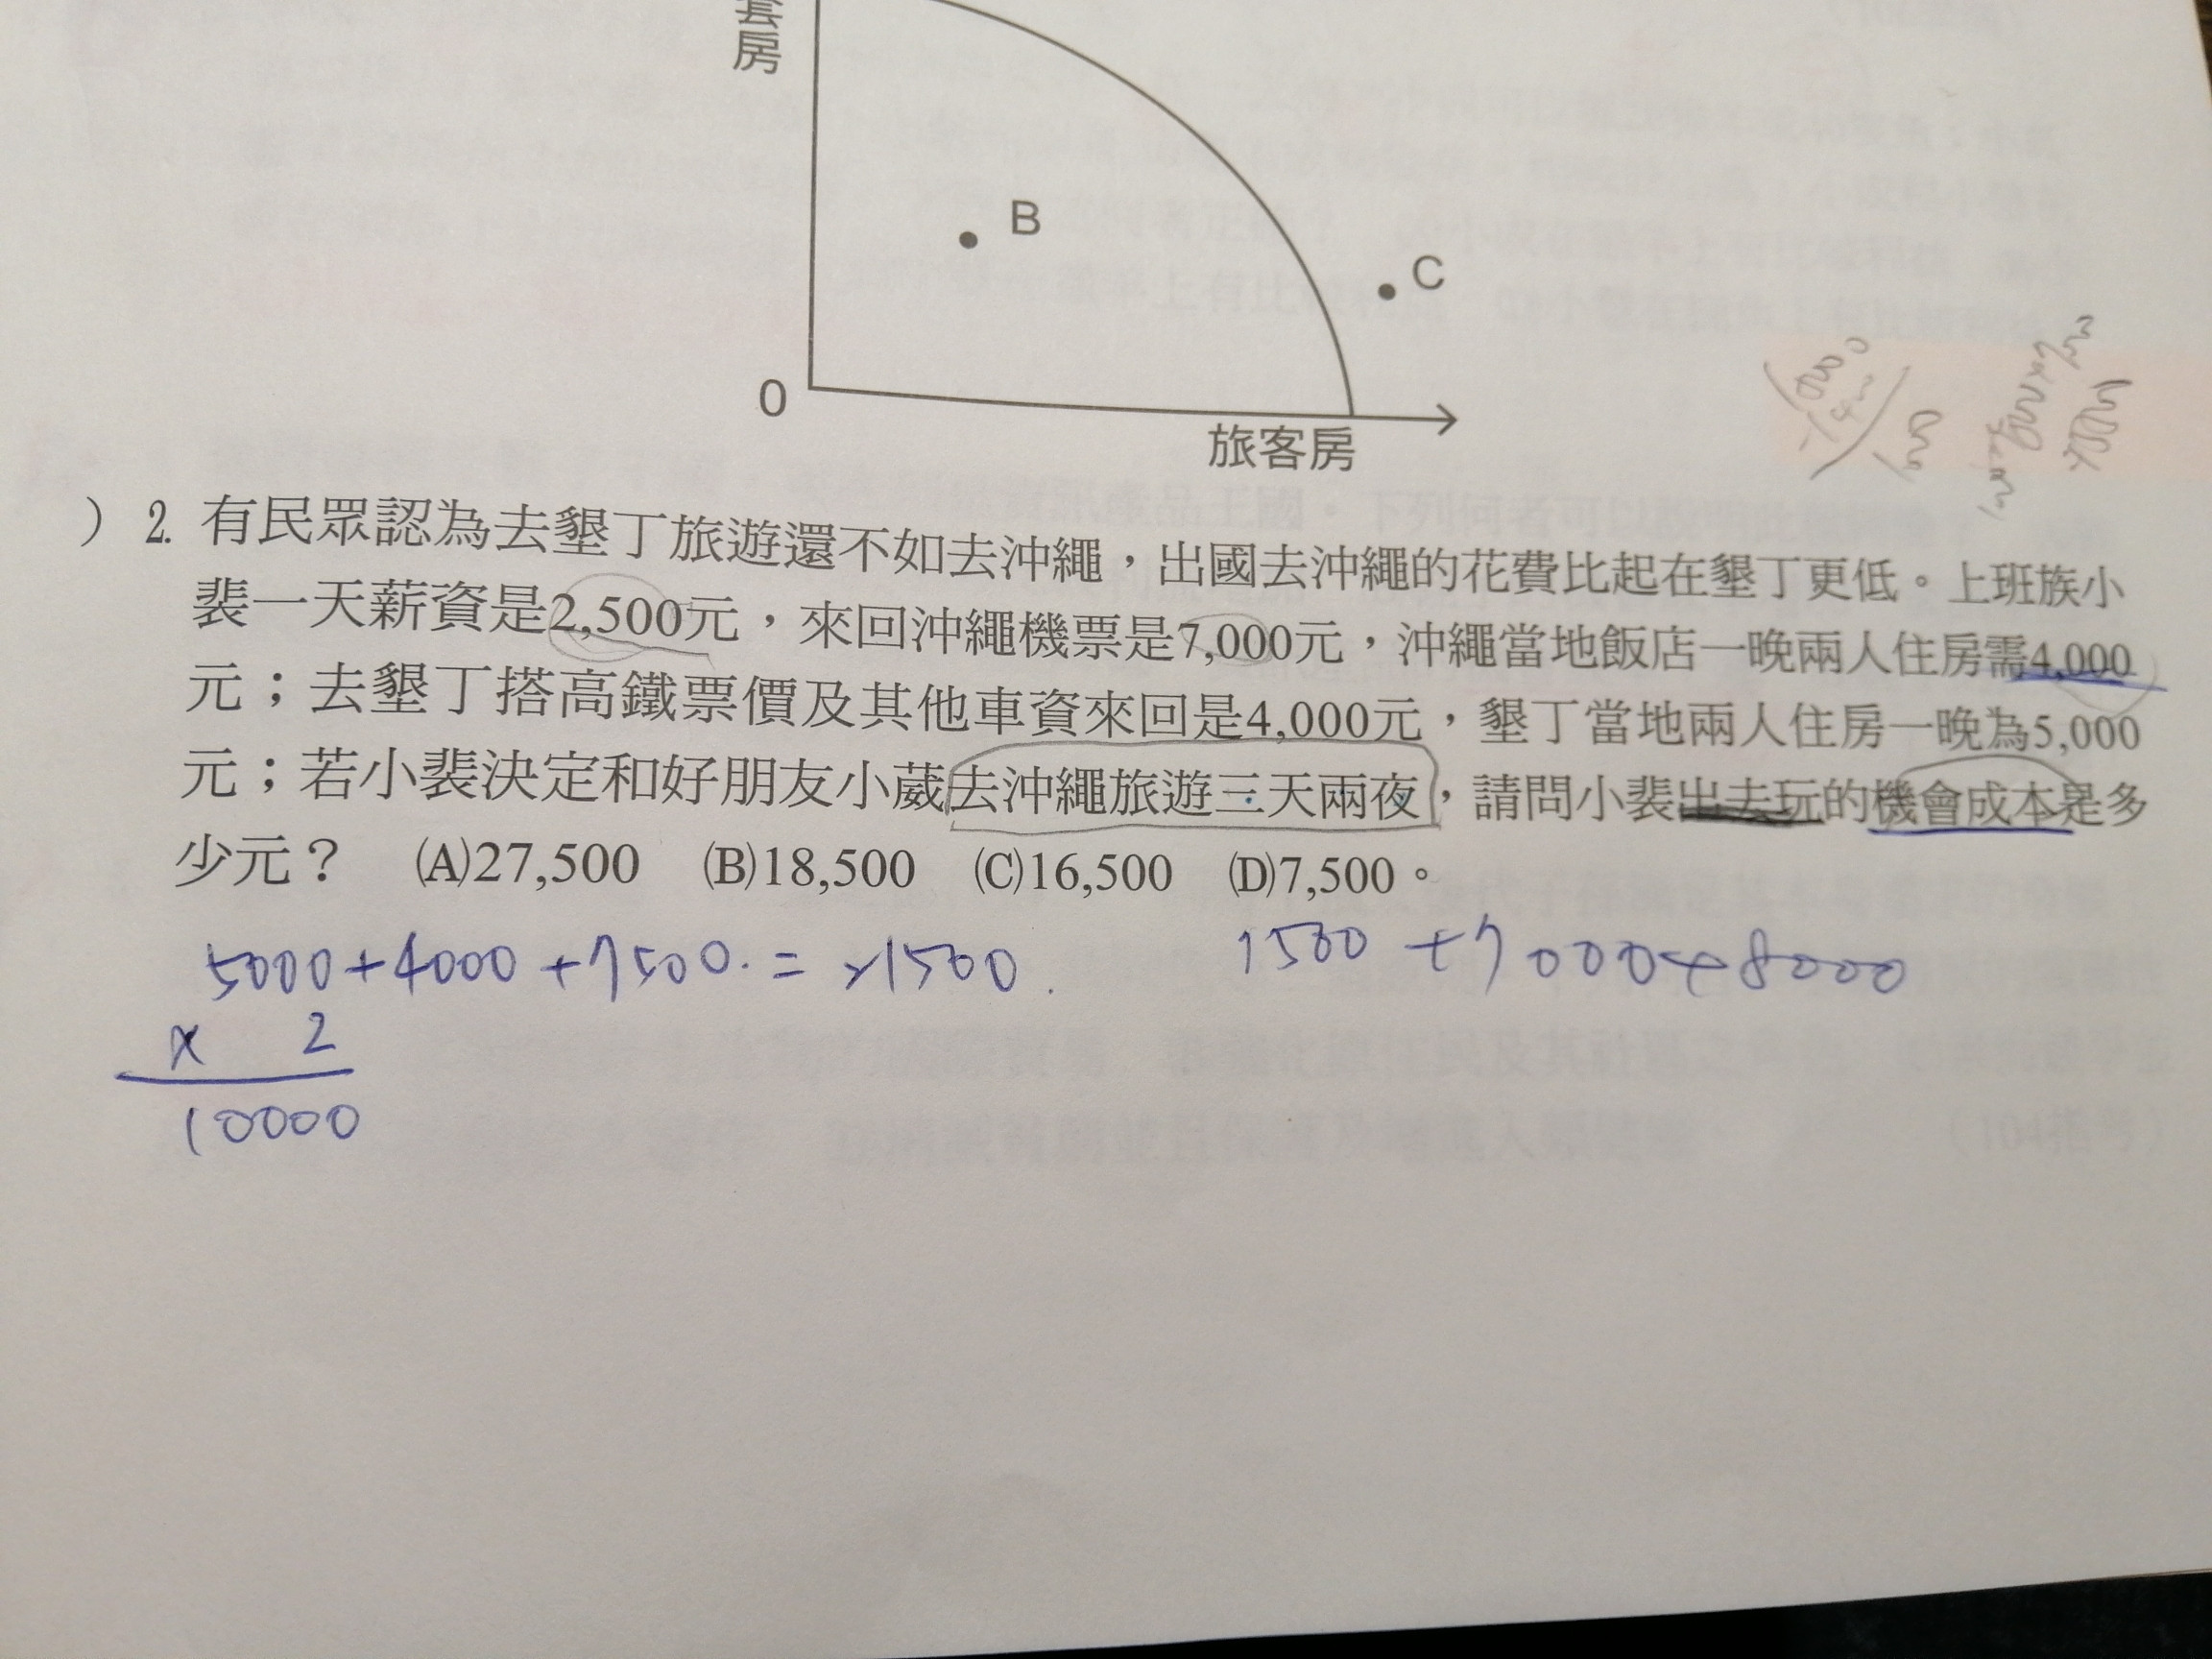 套房
B
C
0
旅客房
) 2. 有民眾認為去墾丁旅遊還不如去沖繩，出國去沖繩的花費比起在墾丁更低。上班族小
裴一天薪資是2,500元，來回沖繩機票是7,000元，沖繩當地飯店一晚兩人住房需4,000
元；去墾丁搭高鐵票價及其他車資來回是4,000元，墾丁當地兩人住房一晚為5,000
元；若小裴決定和好朋友小葳去沖繩旅遊三天兩夜，請問小裴出去玩的機會成本是多
少元？ (A)27,500 (B)18,500 (C)16,500 (D)7,500。
5000+4000+7500.= 21500.
7500 +7000+8000
x 2
10000